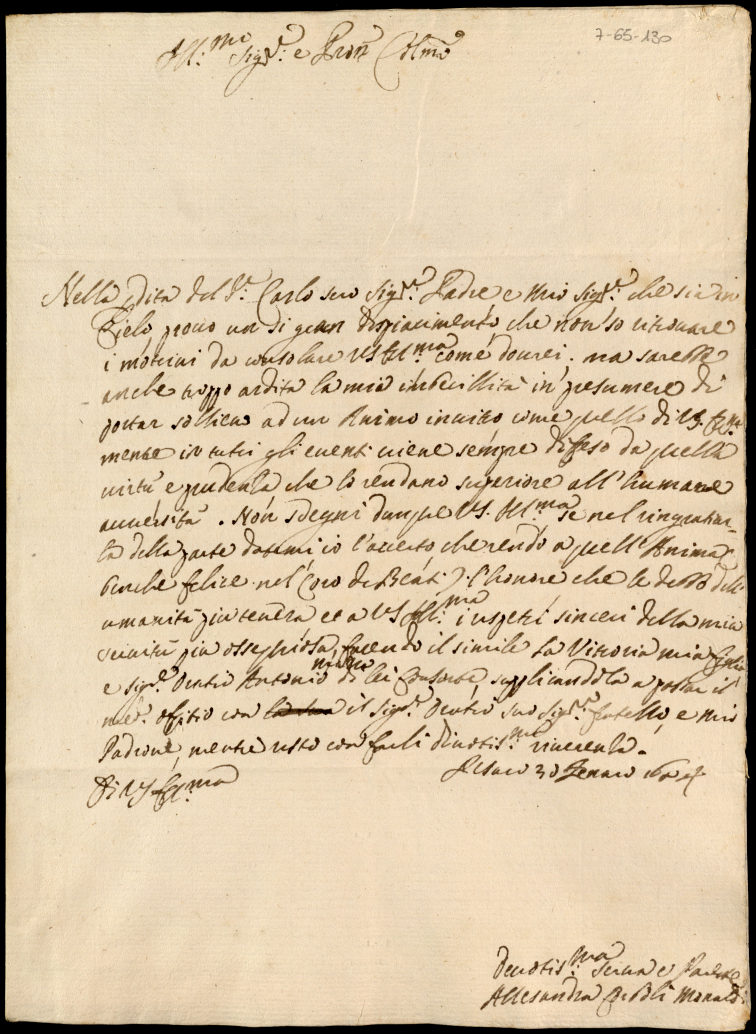 7-65-130
Ill:mo Sigr: e Pron Colmo
Nella pdita del Sr: Carlo suo Sigr: Padre e mio Sigr: che sia in
Cielo prouo un si gran dispiacimento, che non so ritrouare
i motiui da consolare VS Ill:ma come dourei. ma sarebbe
anche troppo ardita la mia imbecillita in presumere di
portar sollieuo ad un Animo inuitto come quello di VS. Ill:ma
mentre in tutti gli euenti uiene sempre difeso da quella
uirtu e prudenza che lo rendano superiore all'humane
auuersità. Non sdegni dunque VS. Ill:ma se nel ringratiar-
la della parte datami io l'accerto che rendo a quell'Anima
benche felice nel Coro de Beati l'honore che le debbo dell'
umanità piu tenera et a VS Ill:ma i rispetti sinceri della mia
seruitù piu ossequiosa, facendo il simile la Vittoria mia figlia
e sigr. Antonio marito di lei Consorte, supplicandola a passar il
med. ofitio con il Sigr. suo Sigr. fratello, e mio
Padrone, mentre resto con farli diuotis:ma riuerenza.
Di VS Ill:ma Pesaro 30 Genaro
Deuotis:ma Serua e Parente
Allesandra Monaldi